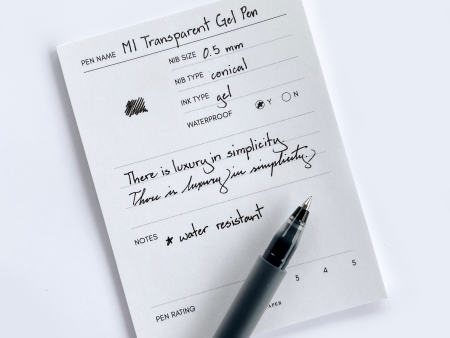 PEN NAME M1 Transparent Gel Pen
NIB SIZE 0.5 mm
NIB TYPE conical
INK TYPE gel
WATERPROOF Y N
There is luxury in simplicity.
There is luxury in simplicity.
NOTES * water resistant
PEN RATING 4 5